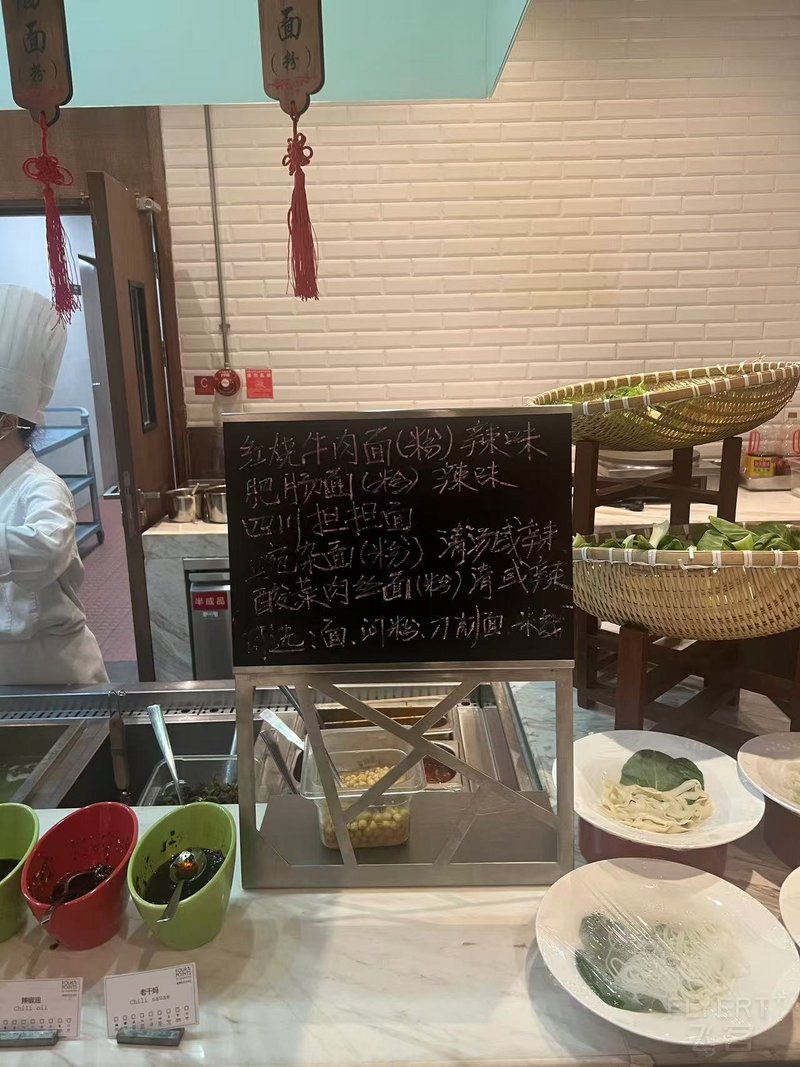 面
(粉)
面
(粉)
C
红烧牛肉面(粉)辣味
肥肠面(粉) 辣味
四川担担面
豌杂面(粉) 清汤或辣
酸菜肉丝面(粉)清或辣
可选:面、河粉、刀削面、米线
半成品
辣椒油
Chili oil
老干妈
Chili sauce
FOUR POINTS
FLYERT
飞客